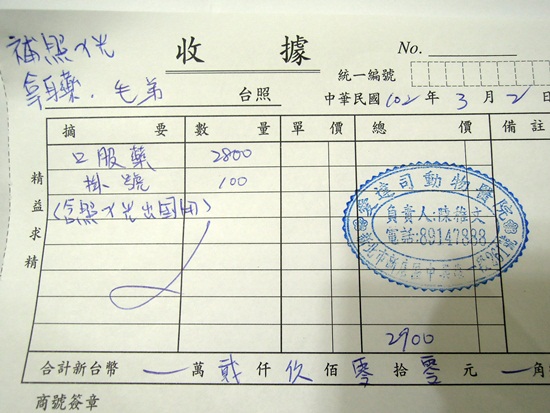 補照X光
收據
No.
統一編號
拿藥．毛弟 台照
中華民國 102 年 3 月 2 日
摘要 數量 單價 總價 備註
口服藥 2800
掛號 100
(含照X光出國用)
精益求精
動物醫院
負責人:陳雅文
電話:89147888
2900
合計新台幣 一 萬 貳 仟 玖 佰 零 拾 零 元 一 角
商號簽章